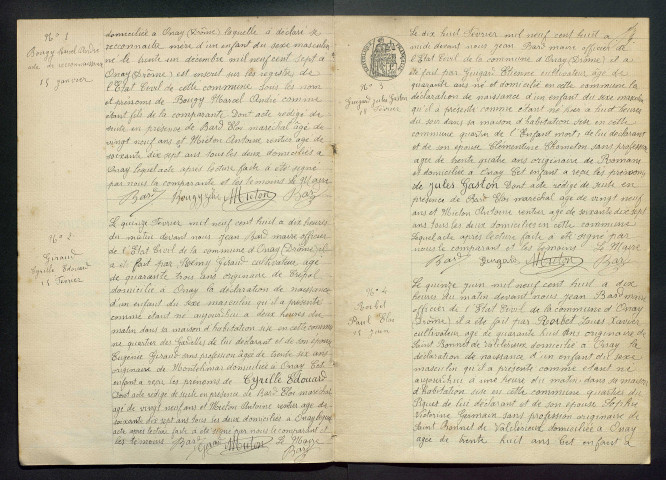 N° 1
Bougy Marcel André
acte de reconnaissance
15 janvier
domiciliée à Onay (Drôme) laquelle a déclaré se
reconnaître mère d'un enfant du sexe masculin
né le trente un décembre mil neuf cent sept à
Onay (Drôme) et inscrit sur les registres de
l'Etat Civil de cette commune sous les nom
et prénoms de Bougy Marcel André comme
étant fils de la comparante. Dont acte rédigé de
suite en présence de Bard Eloi maréchal âgé de
vingt neuf ans et Mieton Antoine rentier âgé de
soixante dix sept ans tous les deux domiciliés à
Onay lequel acte après lecture faite a été signé
par nous la comparante et les témoins Le Maire
Bard Bougy Mieton Bard
N° 2
Giraud
Cyrille Edouard
15 Février
Le quinze Février mil neuf cent huit à dix heures
du matin devant nous Jean Bard maire officier
de l'Etat Civil de la commune d'Onay (Drôme)
a été fait par Rémy Giraud cultivateur âgé
de quarante trois ans originaire de
domicilié à Onay la déclaration de naissance
d'un enfant du sexe masculin qu'il a présenté
comme étant né aujourd'hui à deux heures du
matin dans sa maison d'habitation sise en cette commune
au quartier des de lui déclarant et de son épouse
Eugénie Giraud sans profession âgée de trente six ans
originaire de Montélimar domiciliée à Onay Cet
enfant a reçu les prénoms de Cyrille Edouard
Dont acte rédigé de suite en présence de Bard Eloi maréchal
âgé de vingt neuf ans et Mieton Antoine rentier âgé de
soixante dix sept ans tous les deux domiciliés à Onay lequel
acte après lecture faite a été signé par nous le comparant et
les témoins Bard Giraud Mieton Le Maire
Bard
N° 3
Guigard Jules Gaston
18 Février
Le dix huit Février mil neuf cent huit à
midi devant nous Jean Bard maire officier de
l'Etat Civil de la commune d'Onay (Drôme) il a
été fait par Etienne cultivateur âgé de
quarante ans né et domicilié en cette commune la
déclaration de naissance d'un enfant du sexe masculin
qu'il a présenté comme étant né ce jour à huit heures
du soir dans sa maison d'habitation sise en cette
commune quartier de de lui déclarant
et de son épouse Clémentine sans profession
âgée de trente quatre ans originaire de Romans
et domiciliée à Onay Cet enfant a reçu les prénoms
de Jules Gaston Dont acte rédigé de suite en
présence de Bard Eloi maréchal âgé de vingt neuf
ans et Mieton Antoine rentier âgé de soixante dix sept
ans tous les deux domiciliés en cette commune
lequel acte après lecture faite a été signé par
nous le comparant et les témoins Le Maire
Bard Mieton Bard
N° 4
Korbel
Paul Eloi
15 Juin
Le quinze Juin mil neuf cent huit à dix
heures du matin devant nous Jean Bard maire
officier de l'Etat Civil de la commune d'Onay
(Drôme) il a été fait par Korbel Louis Xavier
cultivateur âgé de quarante huit ans originaire de
Saint Bonnet de Valclérieux domicilié à Onay la
déclaration de naissance d'un enfant du sexe
masculin qu'il a présenté comme étant né
aujourd'hui à une heure du matin dans sa maison
d'habitation sise en cette commune quartier du
de lui déclarant et de son épouse Sophie
Victorine Germain sans profession originaire de
Saint Bonnet de Valclérieux domiciliée à Onay
âgée de trente huit ans Cet enfant a